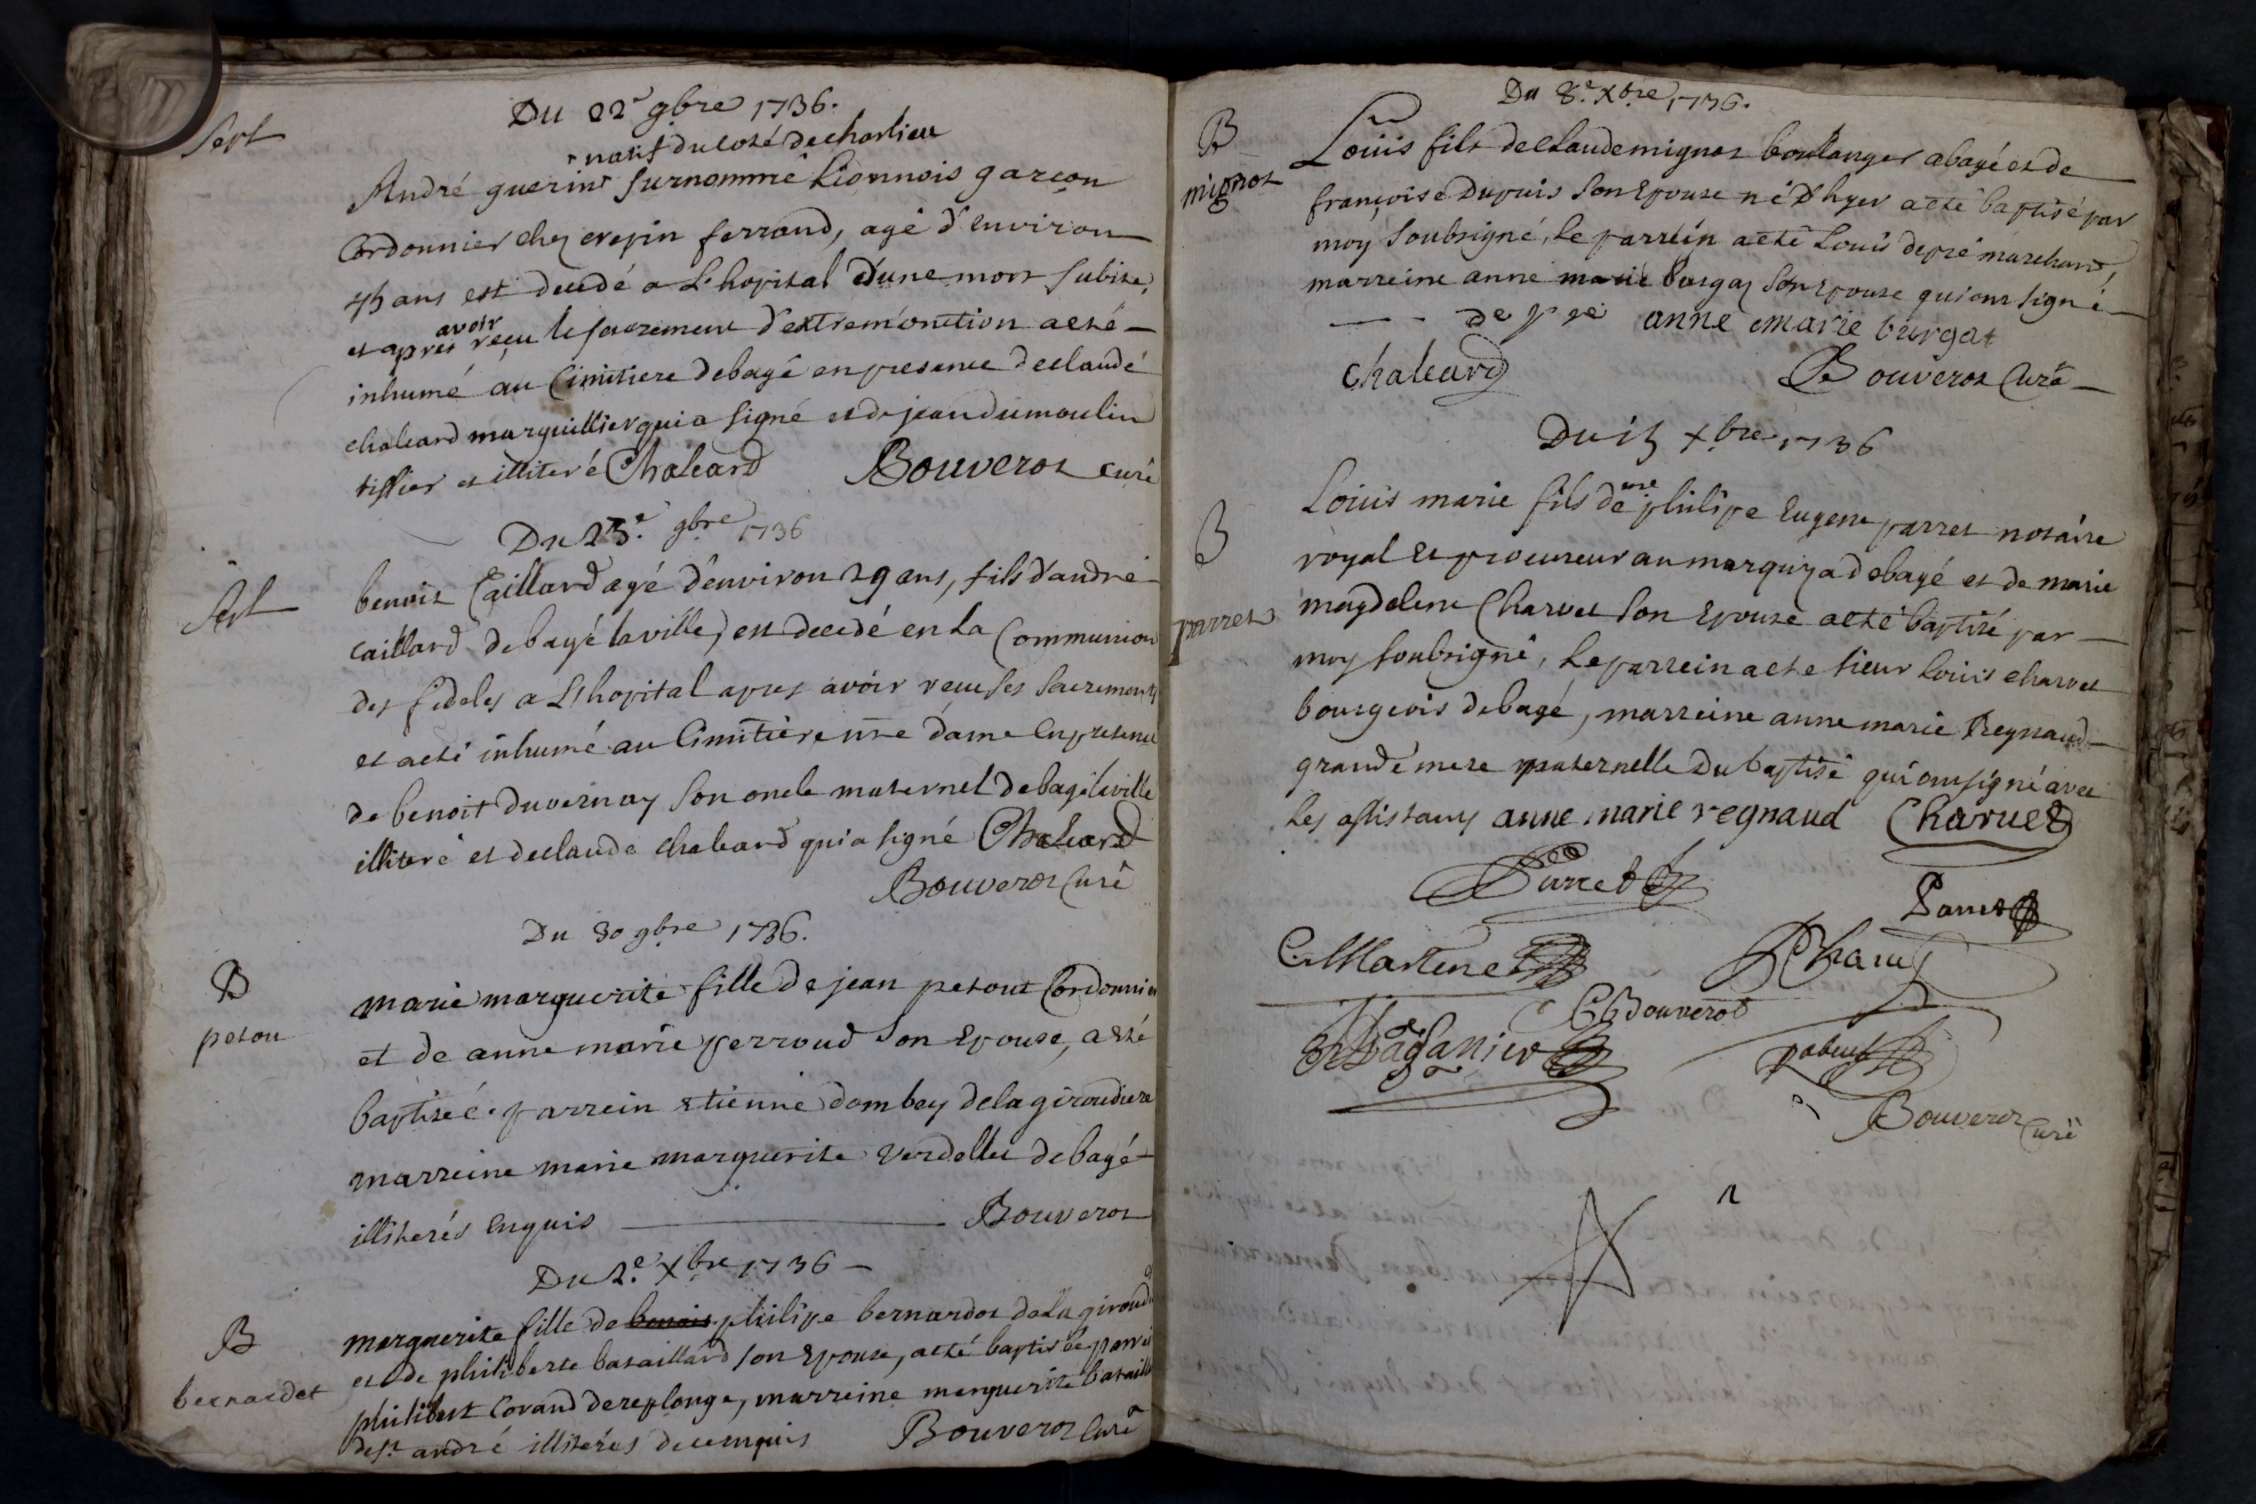 Du 22e 9bre 1736.
Sept
natif du coté de charlieu
André guerin surnommé Lionnois garçon
Cordonnier chez crepin ferrand, agé d'environ
45 ans est decedé a L'hopital d'une mort subite,
et apres avoir reçu le sacrement d'extremonction a eté
inhumé au Cimitiere de bagé en presence de claude
chaleard marguillier qui a signé et de jean dumoulin
tissier et illiteré Chaleard Bouverot curé
Du 23e. 9bre 1736
Sept
benoit Caillard agé d'environ 29 ans, fils d'andré
caillard de bagé la ville, est decedé en la Communion
des fideles a L'hopital apres avoir reçu ses sacrements
et a eté inhumé au Cimitiere nre dame en presence
de benoit duvernay son oncle maternel de bagé la ville
illiteré et de claude chaleard qui a signé Chaleard
Bouverot Curé
Du 30 9bre 1736.
B
petou
marie marguerite fille de jean petout Cordonnier
et de anne marie perroud son Epouse, a eté
baptiseé. parrein etienne dombey de la giroudiere
marreine marie marguerite verdellet de bagé
illiterés Enquis Bouverot
Du 2e. Xbre 1736
B
bernardet
marguerite fille de benoit philipe bernardot de La giroud
et de philiberte bataillard son Epouse, a eté baptisée parrein
philibert Corand de replonge, marreine marguerite bataill
de st andré illiterés de ce enquis Bouverot Curé
Du 8e. Xbre 1736.
B
mignot
Loüis fils de claude mignot boulanger a bagé et de
françoise Dupuis son Epouse né D'hyer a eté baptisé par
moy soubsigné, Le parrein a eté Louis depré marchand,
marreine anne marie burgat son epouse qui ont signé
de pré anne marie burgat
Chaleard Bouverot Curé
Du 15 Xbre 1736
B
parret
Loüis marie fils de me philipe Eugene parret notaire
royal Et procureur au marquizad de bagé et de marie
magdelene Charvet son Epouse a eté baptisé par
moy soubsigné, Le parrein a eté sieur Loüis charvet
bourgeois de bagé, marreine anne marie Reynaud
grande mere paternelle Du baptisé qui ont signé avec
les assistans anne marie regnaud Charvet
Parret
Parret
C. Martene
Charvet
C Bouverot
Bouverot Curé